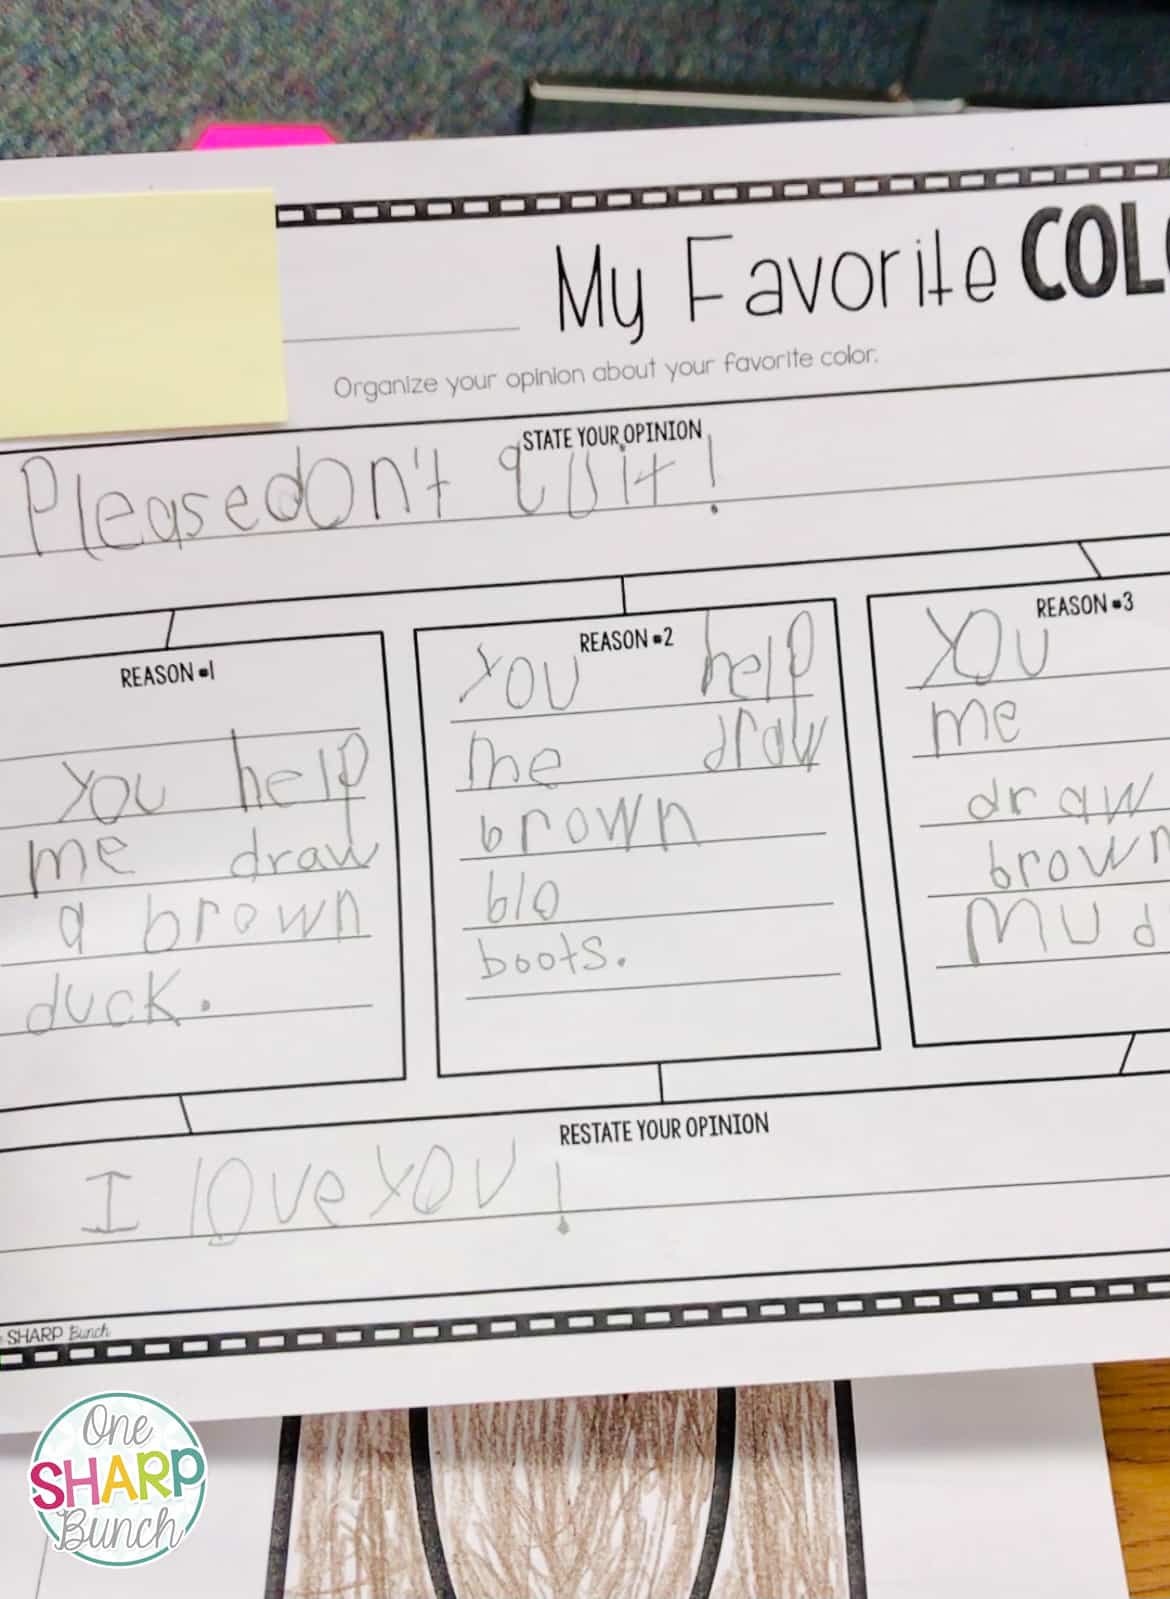 My Favorite COLO
Organize your opinion about your favorite color.
STATE YOUR OPINION
Please don't quit!
REASON #1
you help
me draw
a brown
duck.
REASON #2
you help
me draw
brown
blo
boots.
REASON #3
you
me
draw
brown
mud
RESTATE YOUR OPINION
I love you!
SHARP Bunch
One
SHARP
Bunch